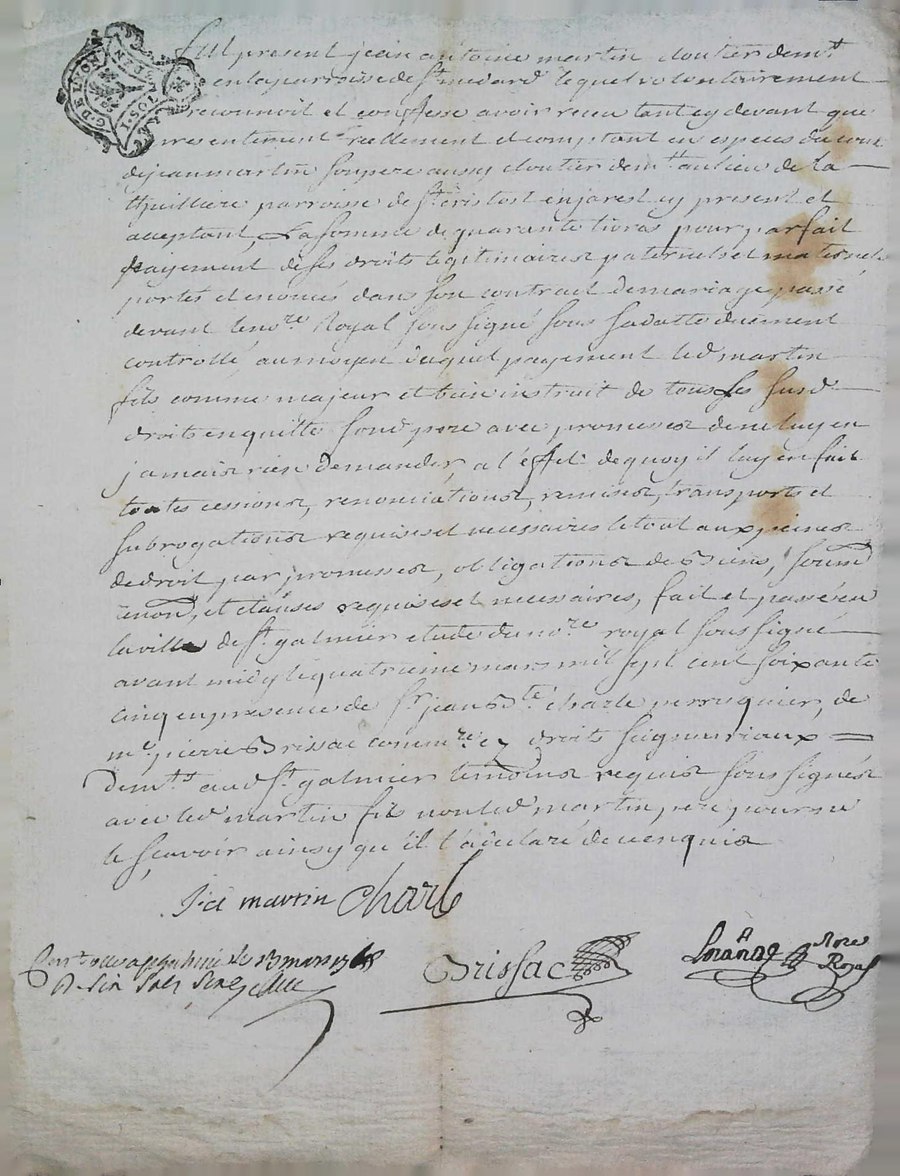 G. DE LYON
Fut present jean antoine martin cloutier dem.t
en la parroisse de S.t medard lequel volontairement
reconnoit et confesse avoir receu tant cy devant que
presentement reellement et comptant en especes du cour
de jean martin son pere aussy cloutier dem.tt au lieu de la
thuilliere parroisse de S.t cristost en jarest cy present et
acceptant, La somme de quarante livres pour parfait
payement de ses droits legitimaires paternels et maternels
portés et enoncés dans son contrait de mariage passé
devant le no.re Royal sous signé sous sa datte duement
controllé, au moyen duquel payement led martin
fils comme majeur et bien instruit de tous ses susd
droits en quitte sond pere avec promesses de ne luy en
jamais rien demander, a l'effet de quoy il luy en fait
toutes cessions, renonciations, remises, transports et
subrogations requises et necessaires le tout aux peines
de droit par promesses, obligations de Biens, soum
renon, et clauses requises et necessaires, fait et passé en
la ville de S.t galmier etude du no.re royal sous signé
avant midy le quatrieme mars mil sept cent soixante
cinq en presence de S.r jean B.te charle perruquier, de
m.e pierre Brissac comm.re ez droits seigneuriaux
dem.ts aud S.t galmier temoins requis sous signés
avec led martin fils non led martin pere pour ne
le scavoir ainsy qu'il l'a declaré de ce enquis
J. a martin Charle
Brissac
no.re Royal
mars 1765